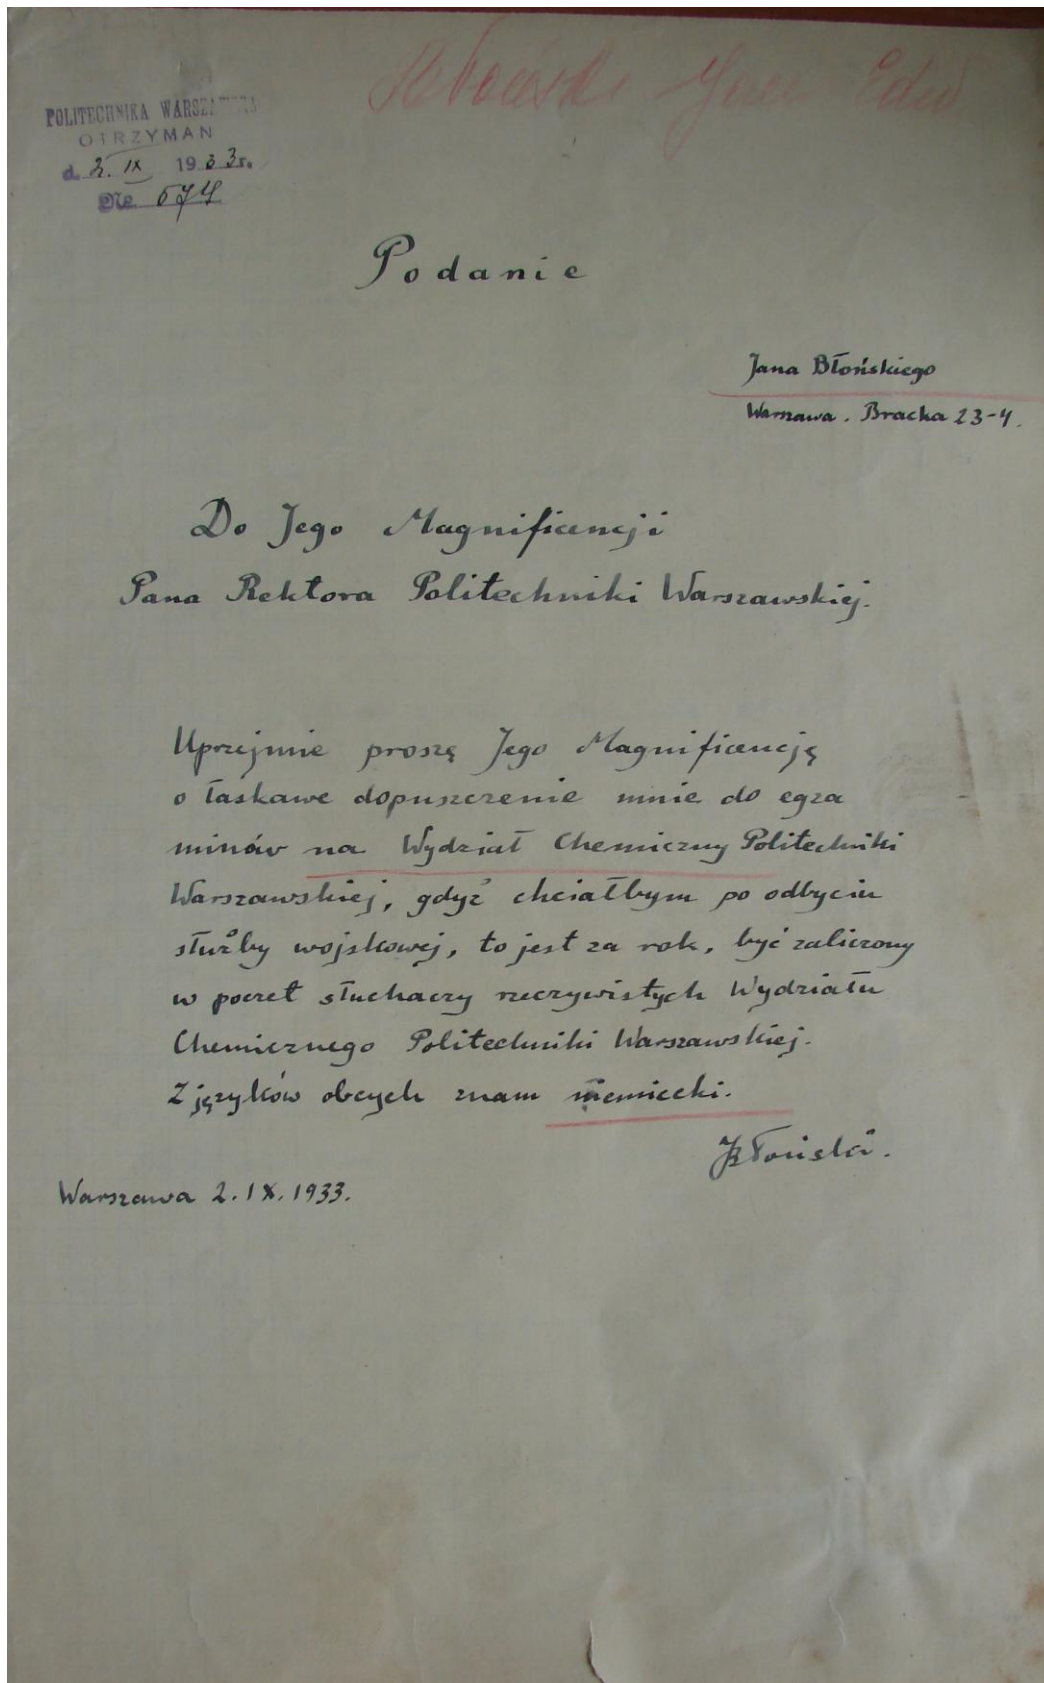 POLITECHNIKA WARSZAWSKA
OTRZYMAN
d. 2. IX 1933 r.
№ 674
Jan Edw
Podanie
Jana Błońskiego
Warszawa. Bracka 23-4.
Do Jego Magnificencji
Pana Rektora Politechniki Warszawskiej.
Uprzejmie proszę Jego Magnificencję
o łaskawe dopuszczenie mnie do egza
minów na Wydział Chemiczny Politechniki
Warszawskiej, gdyż chciałbym po odbyciu
służby wojskowej, to jest za rok, być zaliczony
w poczet słuchaczy rzeczywistych Wydziału
Chemicznego Politechniki Warszawskiej.
Z języków obcych znam niemiecki.
JBłoński.
Warszawa 2. IX. 1933.